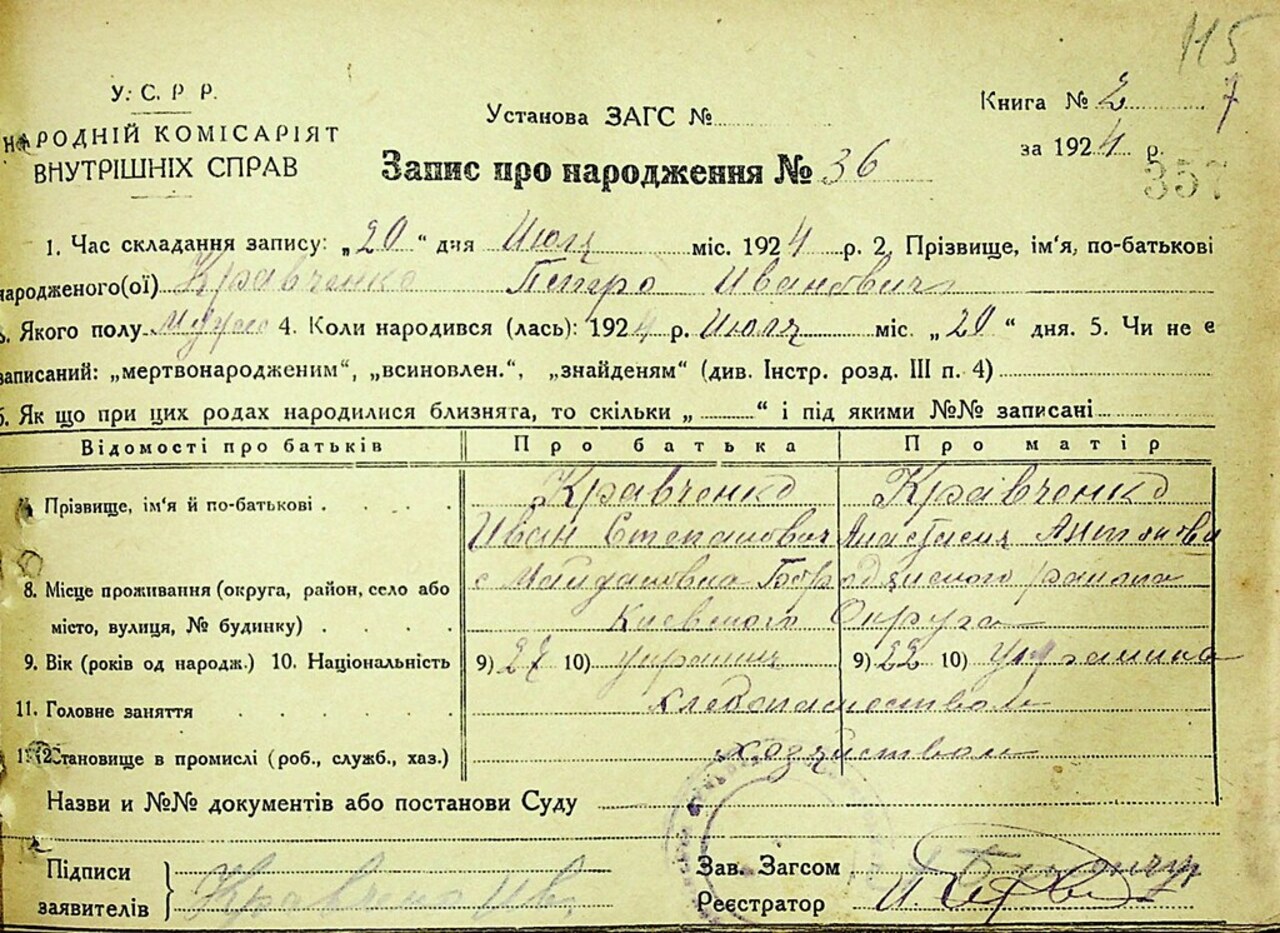 115
7
У. С. Р Р.
НАРОДНІЙ КОМІСАРІЯТ
ВНУТРІШНІХ СПРАВ
Установа ЗАГС №
Книга № 2
за 1924 р.
357
Запис про народження № 36
1. Час складання запису: „20“ дня Июля міс. 1924 р. 2. Прізвище, ім'я, по-батькові
народженого(ої) Кравченко Петро Иванович
3. Якого полу Мужс 4. Коли народився (лась): 1924 р. Июля міс. „20“ дня. 5. Чи не є
записаний: „мертвонародженим“, „всиновлен.“, „знайденям“ (див. Інстр. розд. III п. 4)
6. Як що при цих родах народилися близнята, то скільки „ “ і під якими №№ записані
Відомості про батьків Про батька Про матір
7. Прізвище, ім'я й по-батькові Кравченко Кравченко
Иван Степанович Анастасия Антонови
8. Місце проживання (округа, район, село або с Майдановка Бородянского района
місто, вулиця, № будинку) Киевского Округа
9. Вік (років од народж.) 10. Національність 9) 27 10) украинц 9) 22 10) Украинка
11. Головне заняття хлебопашеством
12. Становище в промислі (роб., служб., хаз.) хозяйством
Назви и №№ документів або постанови Суду
Підписи
заявителів Кравченко Ив.
Зав. Загсом
Реєстратор